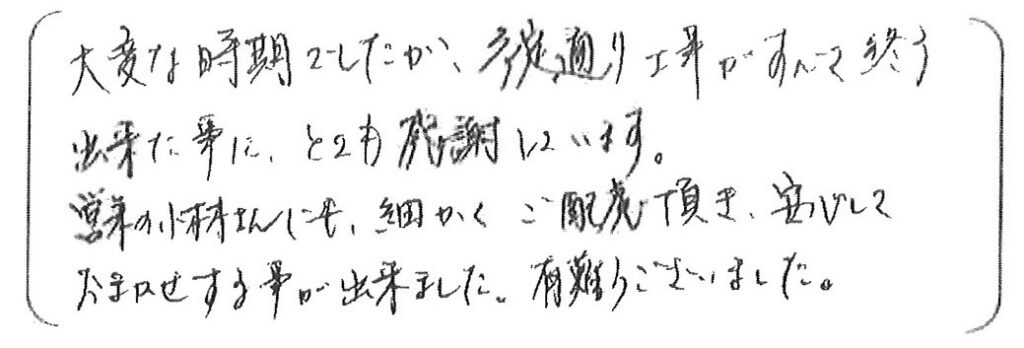 大変な時期でしたが、予定通り工事がすべて終了
出来た事に、とても感謝しています。
営業の小林さんにも、細かくご配慮頂き、安心して
お任せする事が出来ました。有難うございました。